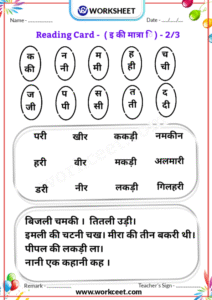 WORKSHEET
Name - Date -
Reading Card - ( इ की मात्रा ि ) - 2/3
क न म ह च
की नी मी ही ची
ज प स त द
जी पी सी ती दी
परी खीर ककड़ी नमकीन
हरी वीर मकड़ी अलमारी
डरी नीर लकड़ी गिलहरी
बिजली चमकी । तितली उड़ी।
इमली की चटनी चख। मीरा की तीन बकरी थी।
पीपल की लकड़ी ला।
नानी एक कहानी कह ।
Remark - Teacher's Sign -
www.workceet.com